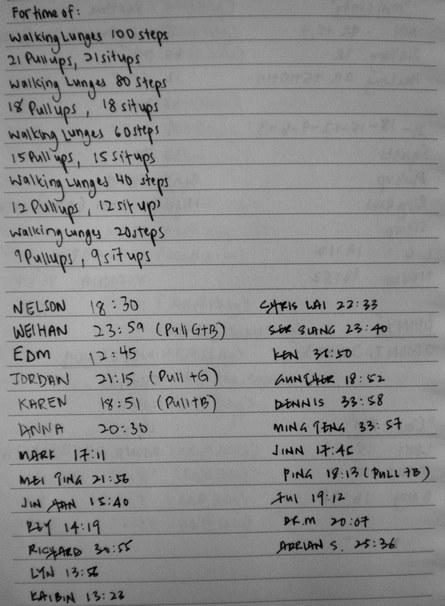 For time of:
Walking Lunges 100 steps
21 Pull ups, 21 sit ups
Walking Lunges 80 steps
18 Pull ups, 18 sit ups
Walking Lunges 60 steps
15 Pull ups, 15 sit ups
Walking Lunges 40 steps
12 Pull ups, 12 sit ups
Walking Lunges 20 steps
9 Pull ups, 9 sit ups
NELSON 18:30
WEIHAN 23:59 (Pull G+B)
EDM 12:45
JORDAN 21:15 (Pull +G)
KAREN 18:51 (Pull+B)
ANNA 20:30
MARK 17:11
MEI TING 21:56
JIN 15:40
ROY 14:19
RICHARD 30:55
LYN 13:56
KAIBIN 13:23
CHRIS LAI 22:33
SER SIANG 23:40
KEN 36:50
GUNTHER 18:52
DENNIS 33:58
MING TENG 33:57
JINN 17:45
PING 18:13 (PULL+B)
JUI 19:12
DR.M 20:07
ADRIAN S. 25:36